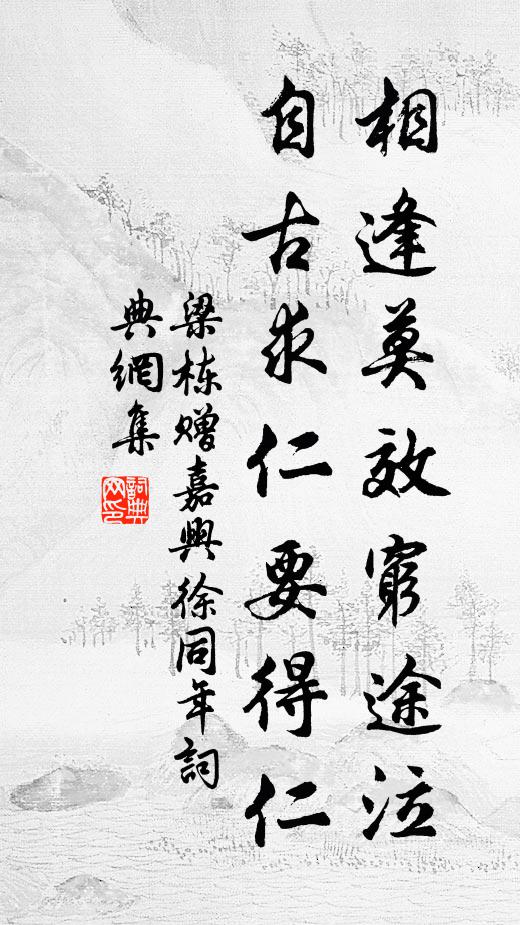 相逢莫效窮途泣
自古求仁要得仁
梁栋赠嘉興徐同年詞
典網集
詞典
网印